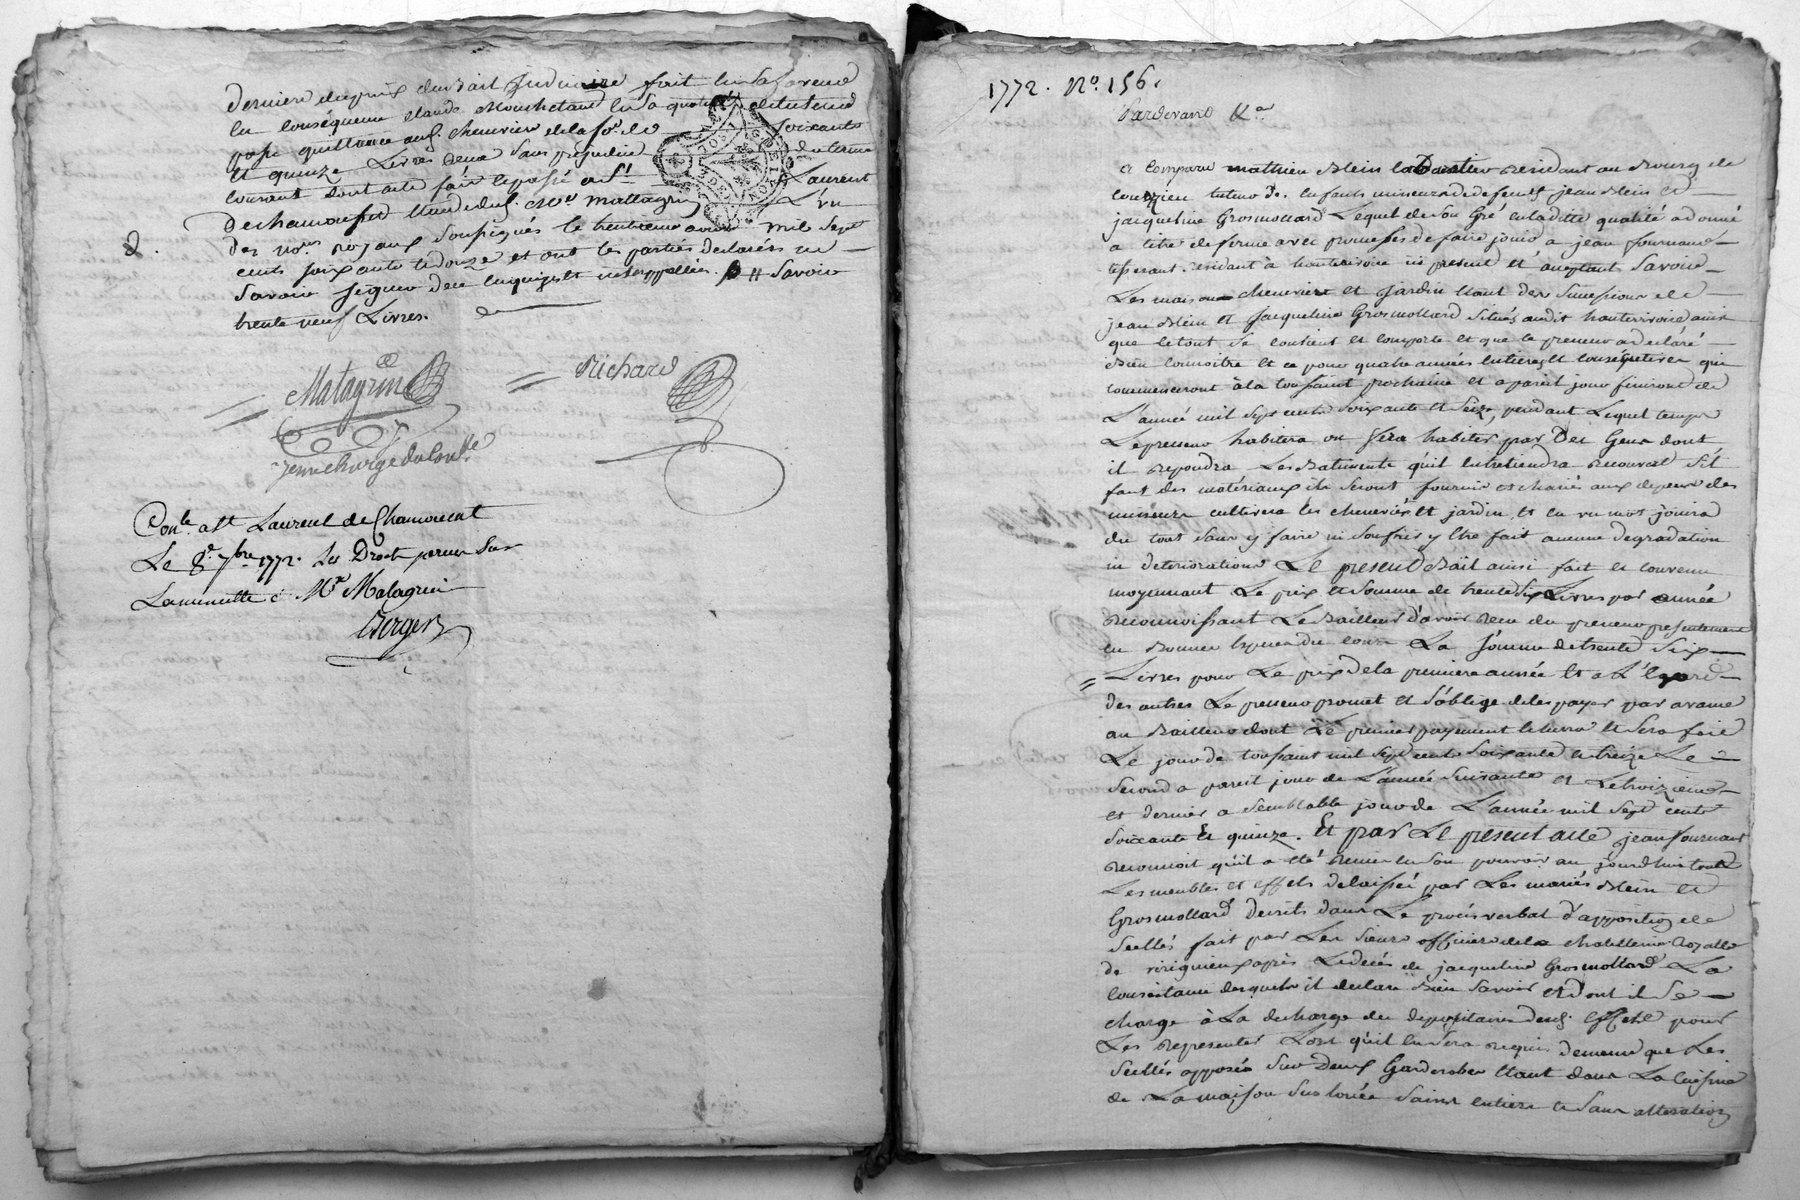 derniere du prix du Bail Judiciaire fait en sa faveur
en consequence Claude en sa qualité
passé quittance aud. cheneviere de la so.e de soixante
et quinze Livres sans prejudice du terme
courant dont acte fait et passé a St Laurent
de chamousset étude dud. Me Mattagrin L'un
des nores royaux soussignés le trentieme avril mil sept
cents soixante et douze et ont les parties declarées ne
savoir signer de ce enquises et interpellées. # Savoir
trente neuf Livres.
Matagrin
Richard
Conle a St Laurent de Chamousset
Le 8e 7bre 1772. Les Droits perçus Sur
La minutte de Mre Matagrin
Berger
1772. No. 156.
Pardevant &a
a comparu mathieu Blein resident au Bourg de
Couzieu tuteur des enfants mineurs de defunts jean Blein et
jacqueline Grosmollard Lequel de son Gré en la ditte qualité a donné
a titre de ferme avec promesses de faire jouir a jean fournand
tisserant residant à hauterivoire ici present et aceptant Savoir
Les maison cheneviere et Jardin étant des successions de
jean Blein et Jacqueline Grosmollard situés audit hauterivoire ainsi
que le tout se contient et comporte et que le preneur a declaré
Bien connoitre et ce pour quatre années entieres et consécutives qui
commenceront à la toussaint prochaine et a pareil jour finiront de
L'année mil sept cents soixante et seize, pendant Lequel temps
Le preneur habitera ou fera habiter par Des Gens dont
il repondra Les Batiments qu'il entretiendra Recouvert s'il
faut des matériaux ils seront fournis et chariés aux depens des
mineurs cultivera les cheneviere et jardin et en un mot jouira
du tout sans y faire ni souffrir y être fait aucune degradation
ni deterioration Le present Bail ainsi fait et convenu
moyennant Le prix et somme de trente six Livres par année
Reconnoissant Le Bailleur d'avoir reçu du preneur presentement
en Bonnes Especes du cours La somme de trente six
Livres pour Le prix de la premiere année et a L'égard
des autres Le preneur promet et s'oblige de les payer par avance
au Bailleur dont Le premier payement echerra et sera fait
Le jour de toussaint mil sept cents soixante et treize Le
second a pareil jour de L'année suivante et Le troizieme
et dernier a semblable jour de L'année mil sept cents
soixante Et quinze. Et par Le present acte jean fournand
reconnoit qu'il a été remis en son pouvoir au jourd'hui touts
Les meubles et effets delaissés par Les mariés Blein et
Grosmollard decrits dans Le procés verbal d'apposition de
scellés fait par Les sieurs officiers de la chatellenie Royalle
de après Le decés de jacqueline Grosmollard La
consistance desquels il declare Bien savoir et dont il se
charge à La decharge du depositaire desd. effets pour
Les representer Lors qu'il en sera requis. demeure que Les
scellés apposés sur deux Garderobes étant dans La cuisine
de La maison sus louée sains entiers et sans alteration